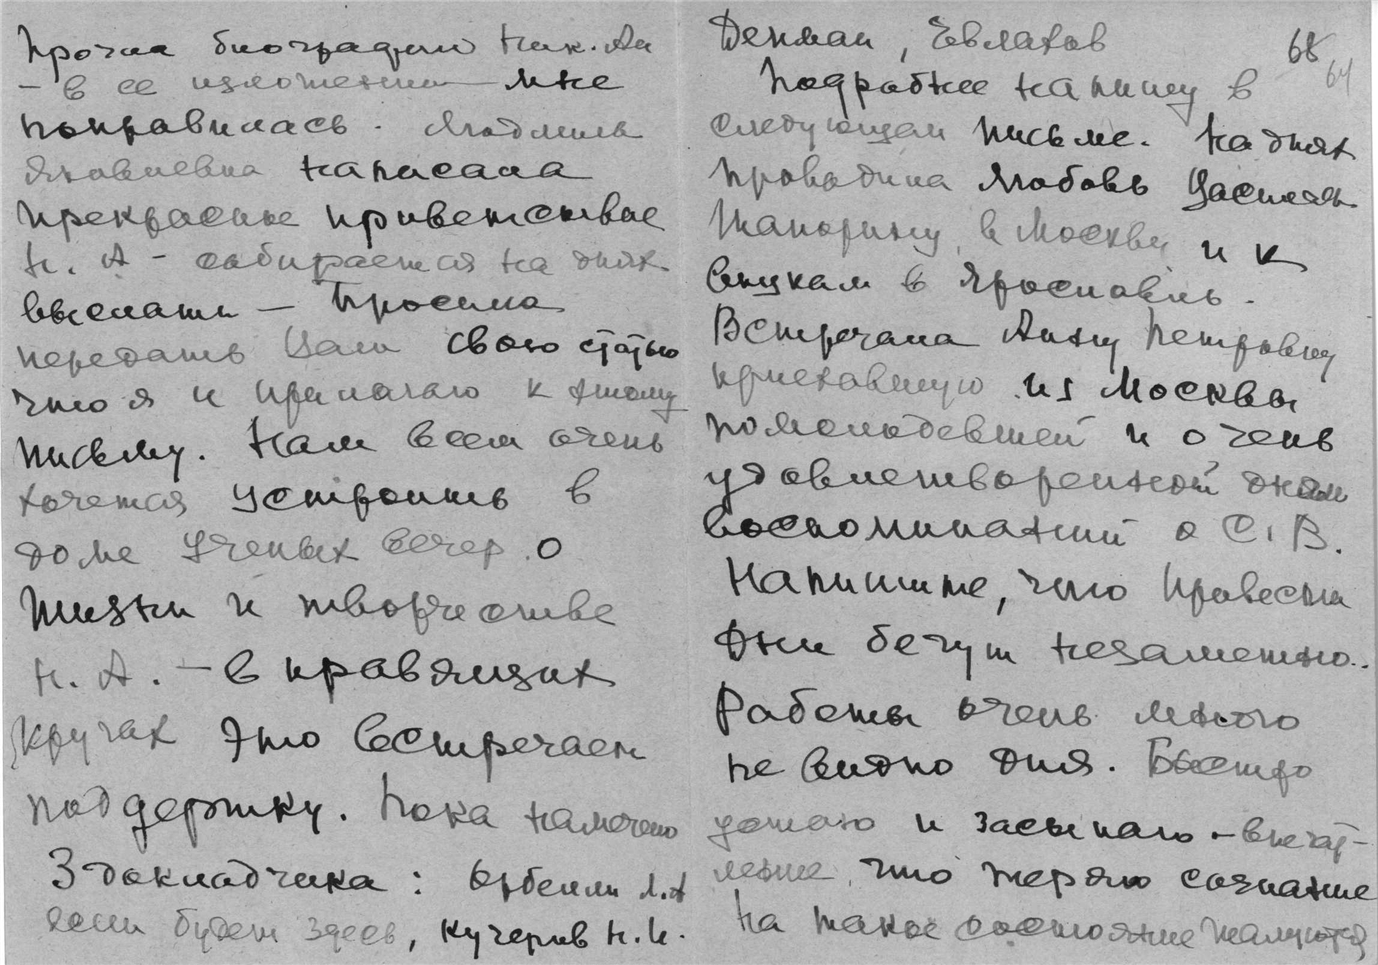 Прочла биографию Ник. Ал
- в ее изложении - мне
понравилась. Людмила
Яковлевна написала
прекрасное приветствие
Н. А - собирается на днях
выслать - Просила
передать Вам свою статью
что я и прилагаю к этому
письму. Нам всем очень
хочется устроить в
доме Ученых вечер о
жизни и творчестве
Н. А. - в правящих
кругах это встречает
поддержку. Пока намечено
3 докладчика: Орбели Л.А
если будет здесь, Кучерив Н. И.
68
64
Денман, Евлахов
Подробнее напишу в
следующем письме. На днях
проводила Любовь Васильев.
Шапорину, в Москву и к
внукам в Ярославль.
Встречала Анну Петровну
приехавшую из Москвы
помолодевшей и очень
удовлетворенной днем
воспоминаний о С. В.
Напишите, что Провести
Дни бегут незаметно..
Работы очень много
не видно дня. Быстро
устаю и засыпаю - впечат-
ление, что теряю сознание
На такое состояние жалуются